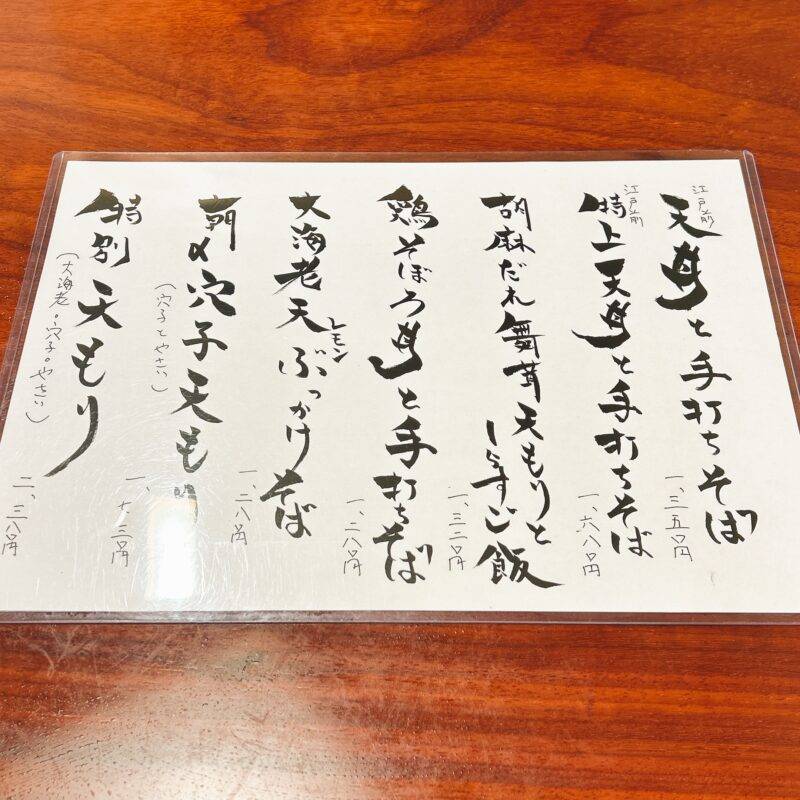 江戸前
天丼と手打ちそば
一、三五〇円
江戸前
特上天丼と手打ちそば
一、六八〇円
胡麻だれ舞茸天もりと
しらすご飯
一、三二〇円
鶏そぼろ丼と手打ちそば
一、二八〇円
大海老天ぶっかけそば
レモン
一、二八〇円
穴子天もり
(穴子とやさい)
一、七三〇円
特別天もり
(大海老・穴子・やさい)
二、三八〇円